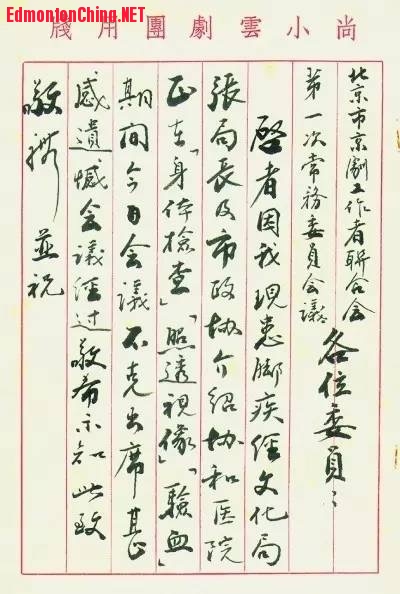 EdmontonChina.NET
尚小雲劇團用牋
北京市京劇工作者聯合会
第一次常務委員会議 各位委員:
啓者因我現患脚疾经文化局
張局長及市政协介紹协和医院
正在「身体檢查」「照透視像」「驗血」
期间今日会議不克出席甚
感遺憾会議经过敬希示知此致
敬禮 並祝